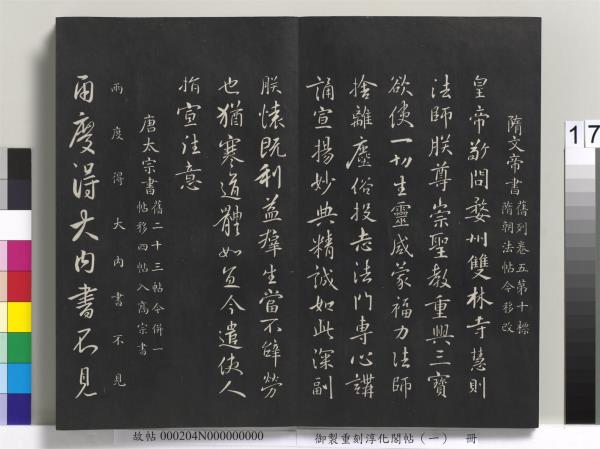 隋文帝書 舊列卷五第十標
隋朝法帖今移改
皇帝敬問婺州雙林寺慧則
法師朕尊崇聖教重興三寶
欲使一切生靈咸蒙福力法師
捨離塵俗投志法門專心講
誦宣揚妙典精誠如此深副
朕懷既利益群生當不辭勞
也猶寒道體如宜今遣使人
指宣往意
唐太宗書 舊二十三帖今併一
帖移四帖入高宗書
兩度得大內書不見
兩度得大內書不見
故帖 000204N000000000
御製重刻淳化閣帖（一） 冊
17